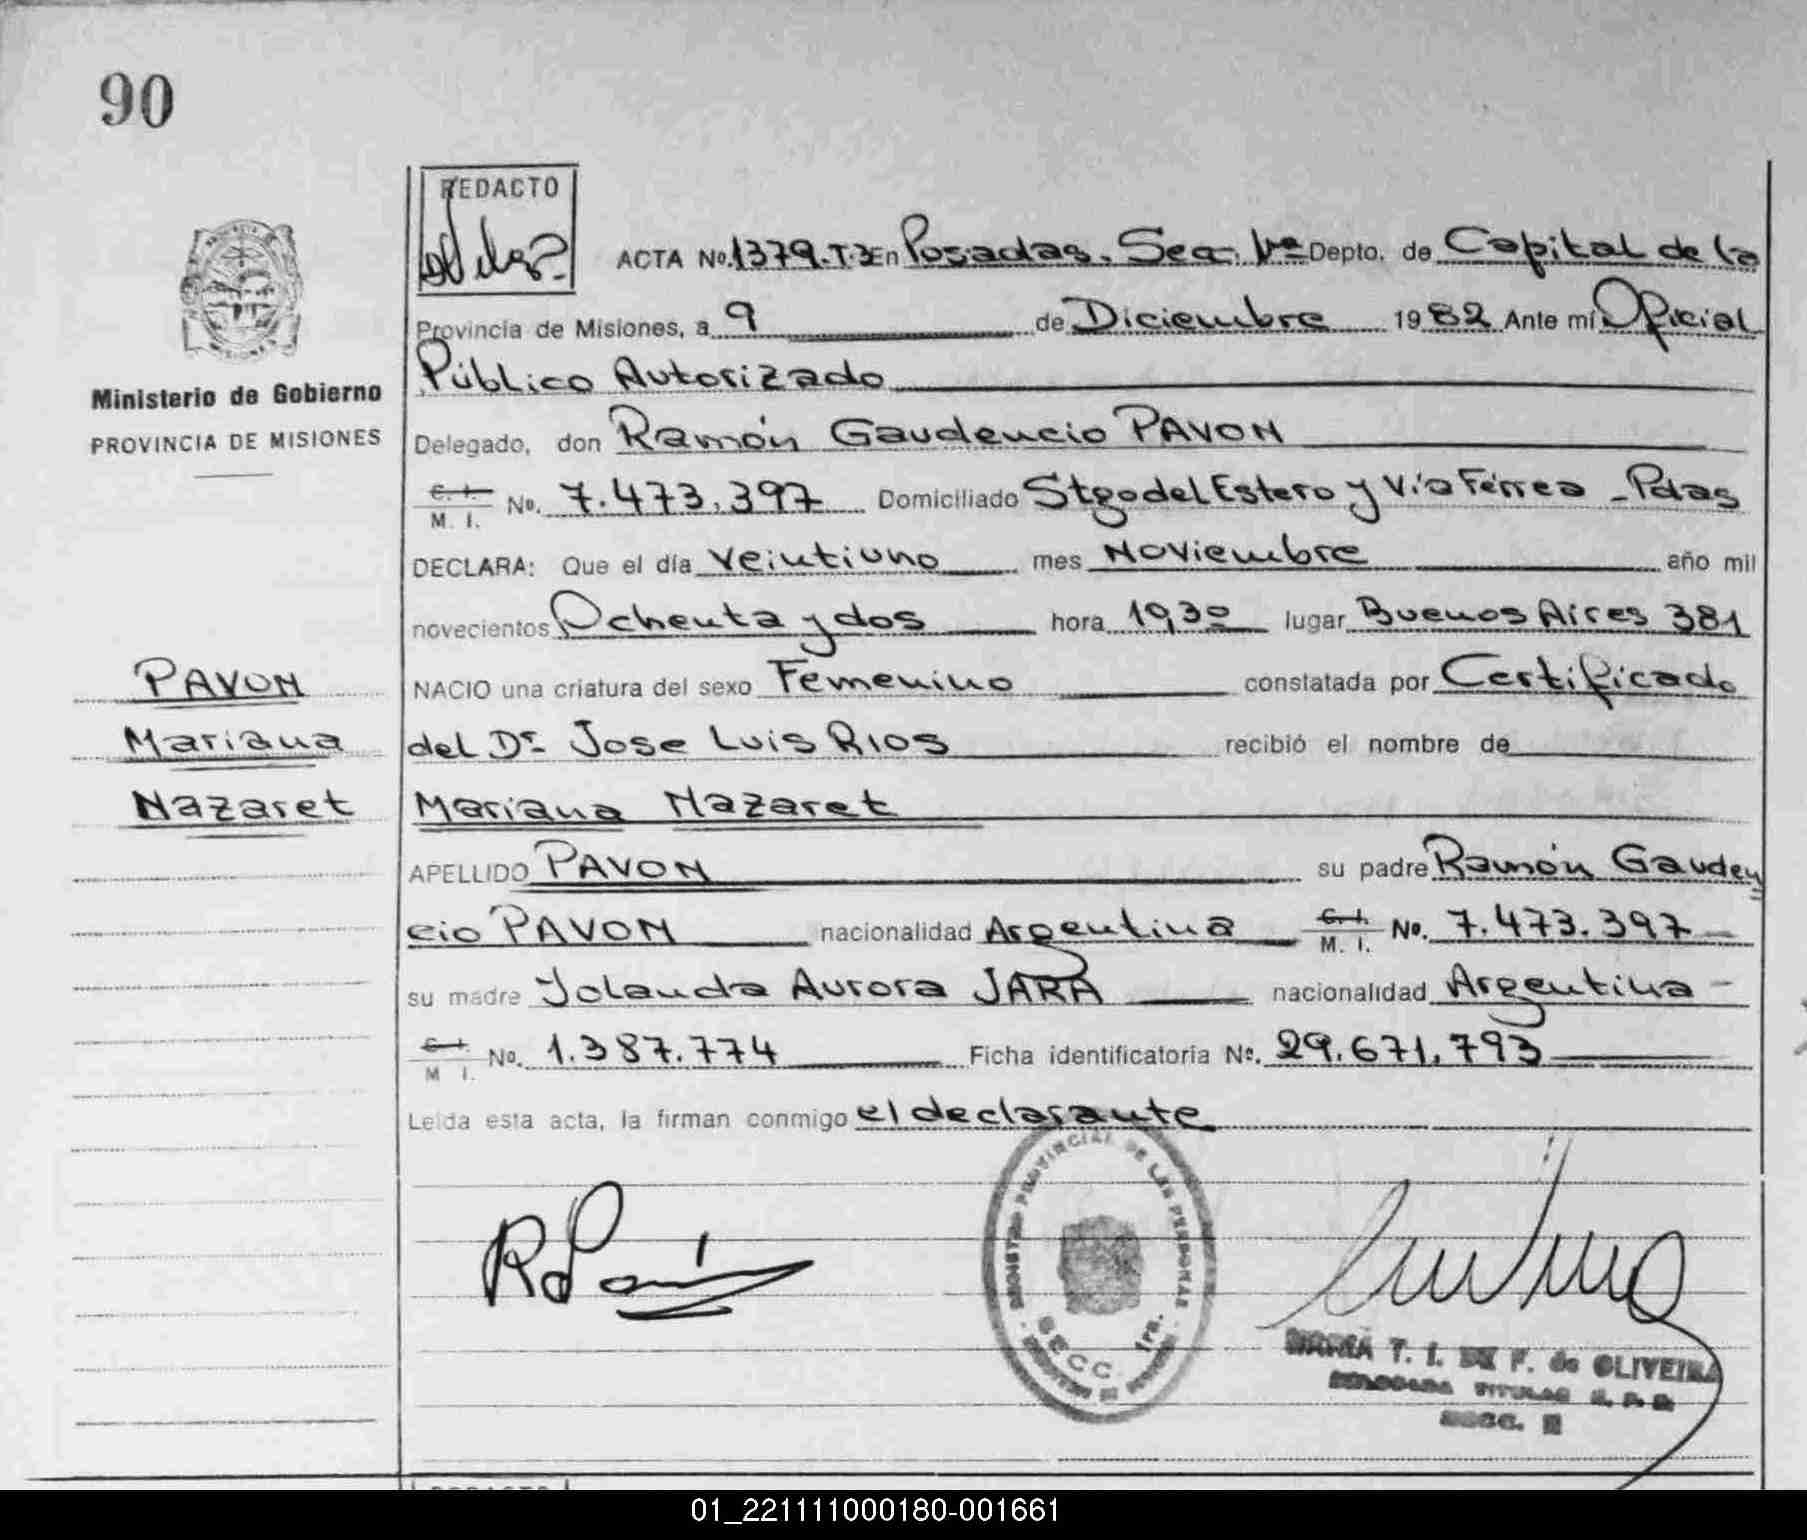 90
REDACTO
ACTA No. 1379.T.3 En Posadas. Sec. 1ra Depto. de Capital de la
Provincia de Misiones, a 9 de Diciembre 1982 Ante mí Oficial
Público Autorizado
Ministerio de Gobierno
PROVINCIA DE MISIONES
Delegado, don Ramón Gaudencio PAVON
C. I.
M. I. No. 7.473.397 Domiciliado Stgo del Estero y Vía Férrea - Pdas
DECLARA: Que el día veintiuno mes Noviembre año mil
novecientos Ochenta y dos hora 19,30 lugar Buenos Aires 381
PAVON
NACIO una criatura del sexo Femenino constatada por Certificado
Mariana
del Dr. Jose Luis RIOS recibió el nombre de
Nazaret
Mariana Nazaret
APELLIDO PAVON su padre Ramón Gauden
cio PAVON nacionalidad Argentina C. I. M. I. No. 7.473.397
su madre Yolanda Aurora JARA nacionalidad Argentina
C. I.
M. I. No. 1.387.774 Ficha identificatoria No. 29.671.793
Leída esta acta, la firman conmigo el declarante
REGISTRO PROVINCIAL DE LAS PERSONAS
SECC. 1ra.
MARIA T. I. DE F. de OLIVEIRA
DELEGADA TITULAR R. P. P.
SECC.
REDACTO
01_221111000180-001661